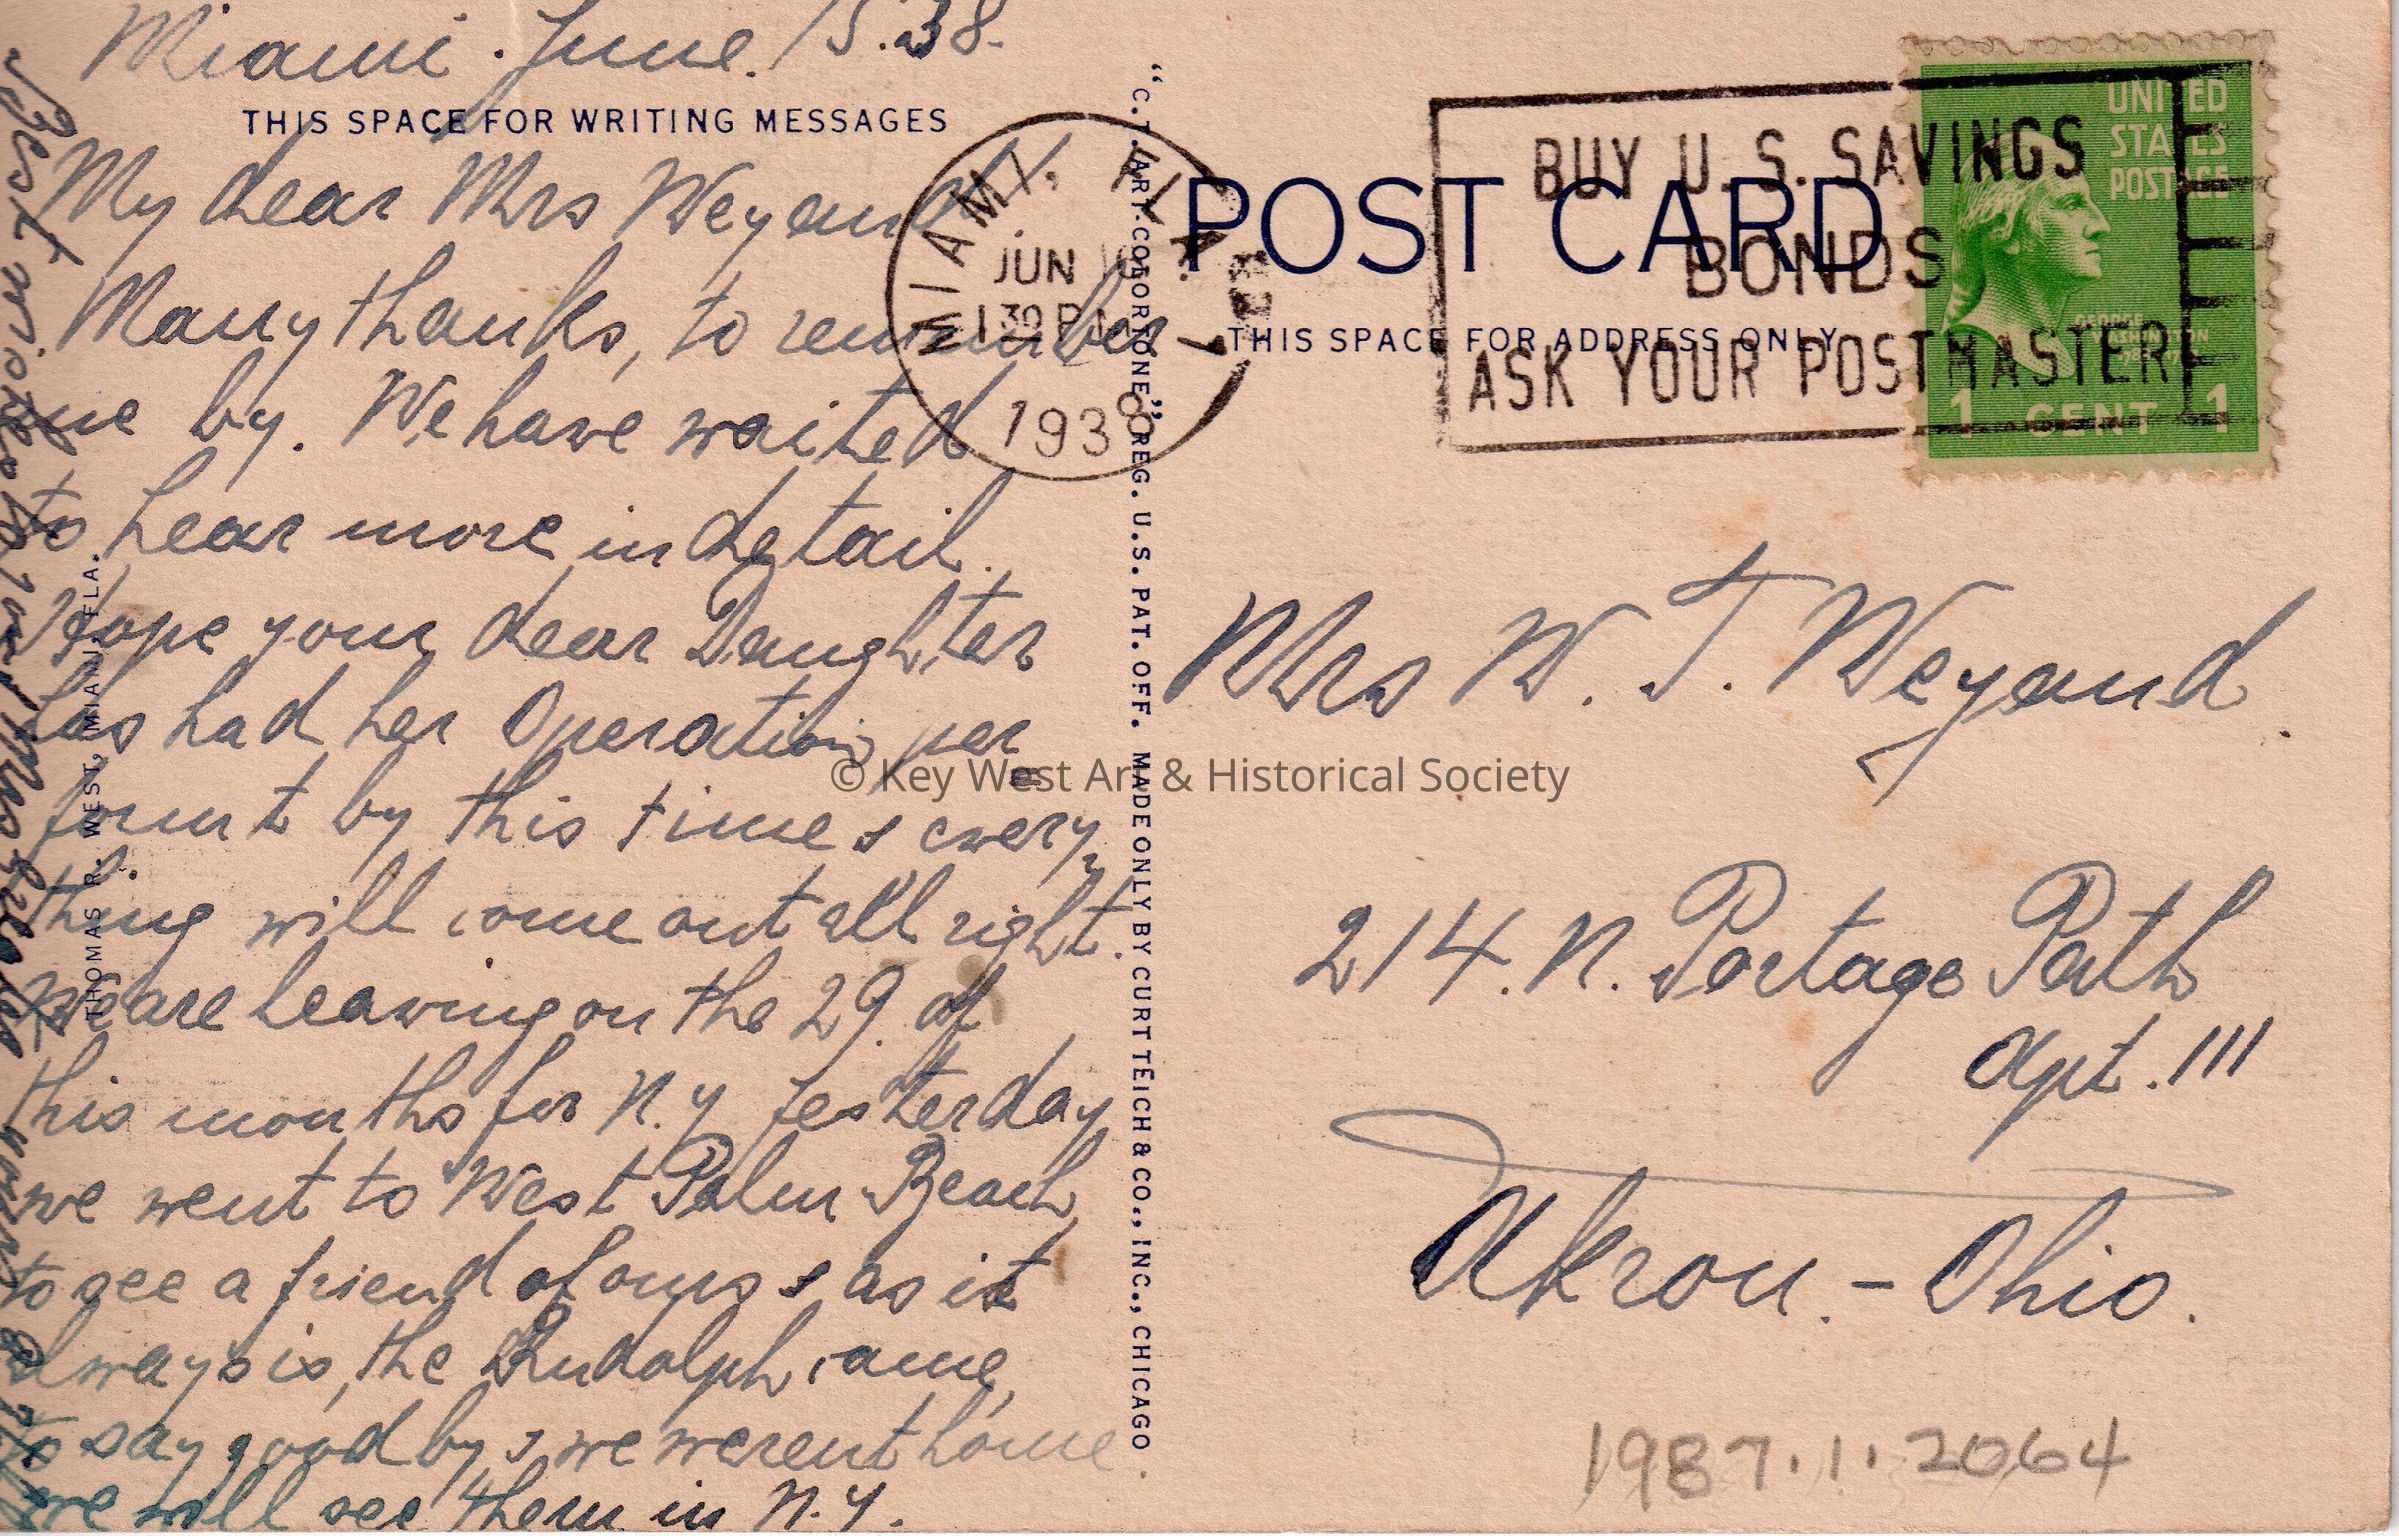 Miami. June. 15.38.
THIS SPACE FOR WRITING MESSAGES
My dear Mrs Weyand!
Many thanks, to remember
me by. We have waited
to hear more in detail.
Hope your dear Daughter
has had her Operation, per
formt by this time & every
thing will come out all right.
We are leaving on the 29. of
this months for N.Y Yesterday
we went to West Palm Beach,
to see a friend of ours & as it
always is, the Rudolph came,
to say good by, & we werent home.
we will see them in N.Y.
Best wishes to you
THOMAS R. WEST, MIAMI, FLA.
"C.T. ART-COLORTONE" REG. U.S. PAT. OFF. MADE ONLY BY CURT TEICH & CO., INC., CHICAGO
MIAMI, FLA.
JUN
1 30 PM
1938
POST CARD
THIS SPACE FOR ADDRESS ONLY
BUY U. S. SAVINGS
BONDS
ASK YOUR POSTMASTER
UNITED
STATES
POSTAGE
GEORGE
WASHINGTON
1 CENT 1
Mrs W. T. Weyand.
214. N. Portage Path
Apt. 111
Akron. - Ohio.
1987.1.2064
© Key West Art & Historical Society